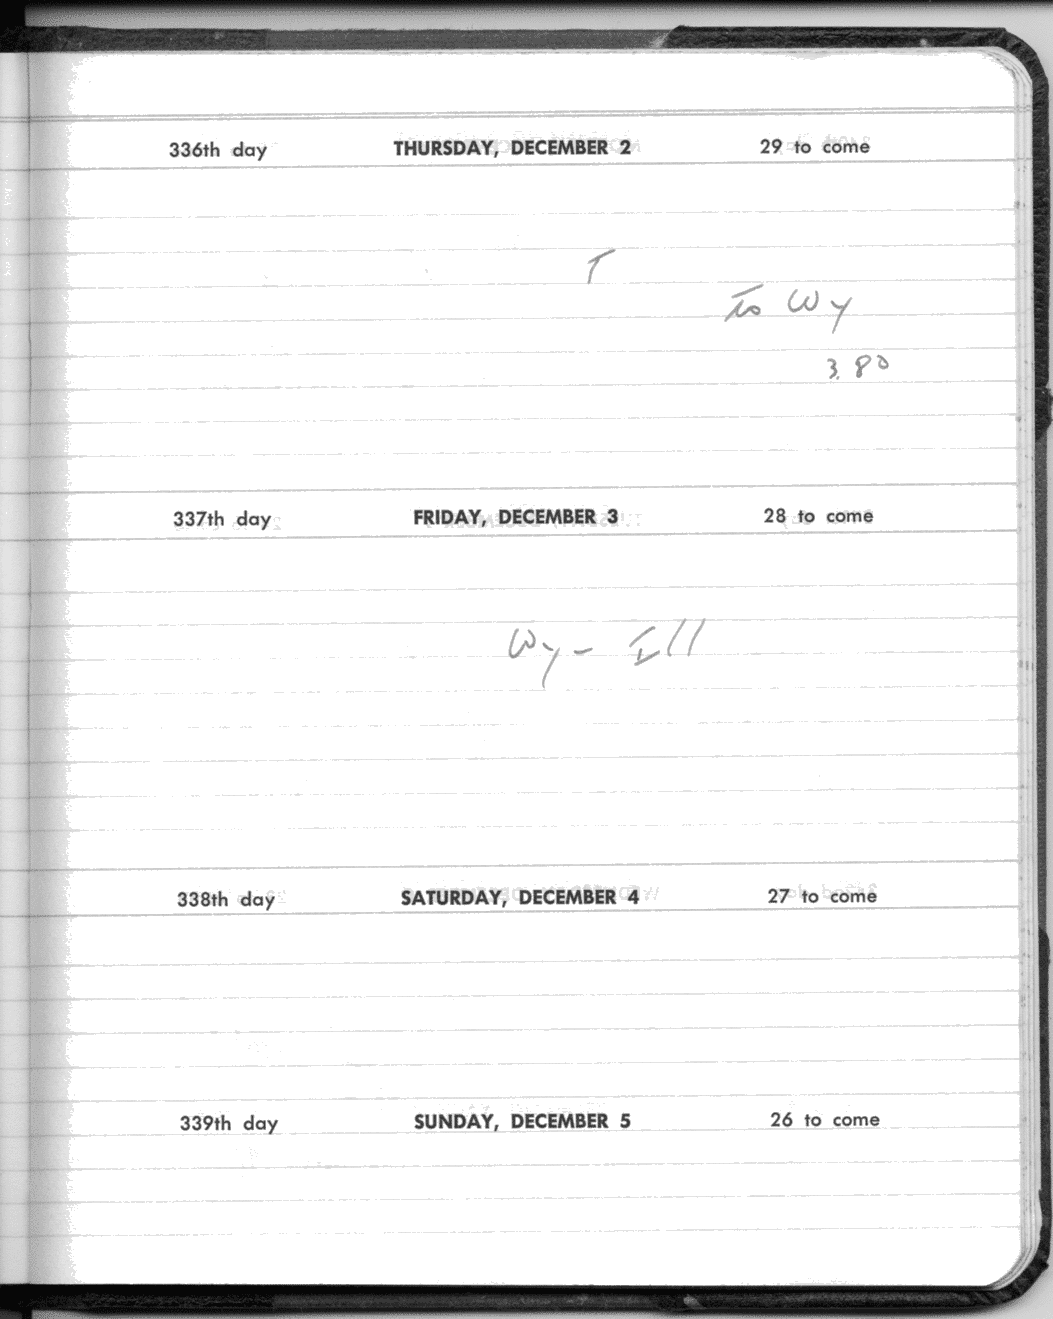 336th day THURSDAY, DECEMBER 2 29 to come
T
To Wy
3.80
337th day FRIDAY, DECEMBER 3 28 to come
Wy - Ill
338th day SATURDAY, DECEMBER 4 27 to come
339th day SUNDAY, DECEMBER 5 26 to come